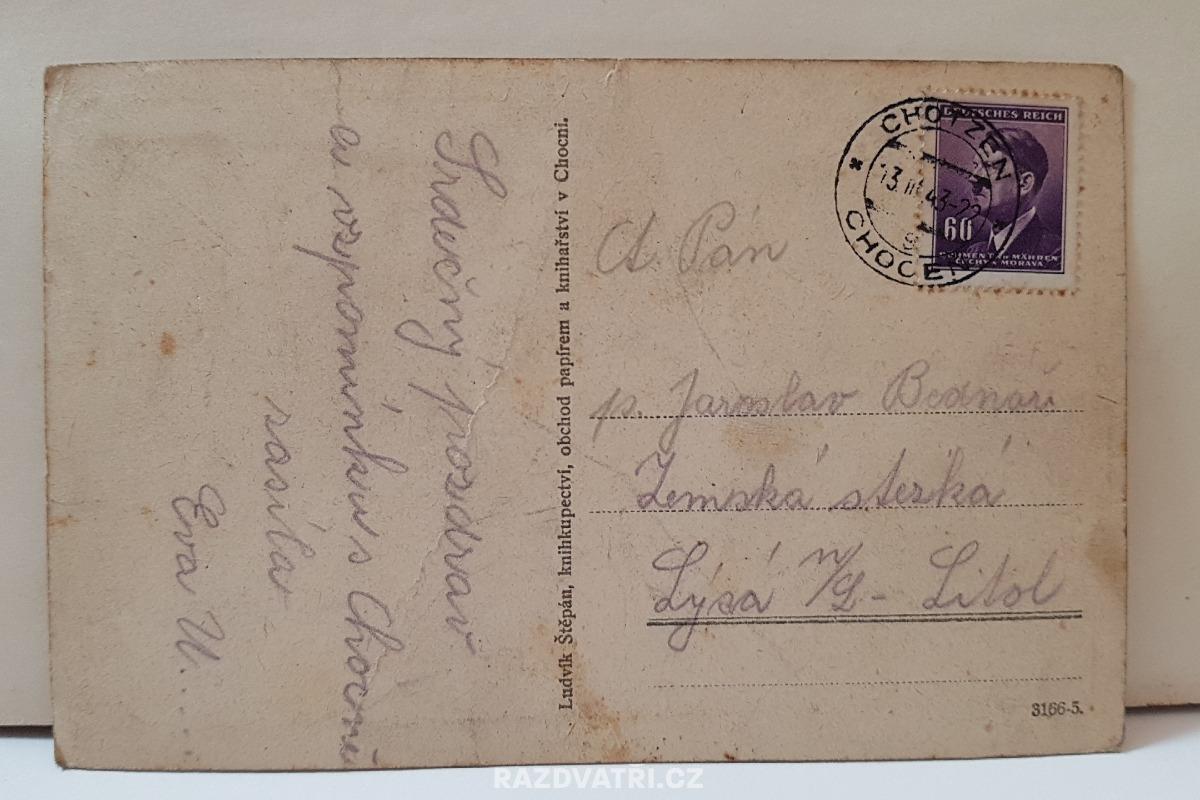 Srdečný pozdrav
a vzpomínku s Chocně
zasílá
Eva U....
Ludvík Štěpán, knihkupectví, obchod papírem a knihařství v Chocni.
CHOTZEN
13.III.43-22
CHOCEŇ
DEUTSCHES REICH
60
BÖHMEN u. MÄHREN
ČECHY A MORAVA
Ct. Pán
p. Jaroslav Bednář
Zemská stezka
Lysá n/L - Litol
3166-5.
RAZDVATRI.CZ